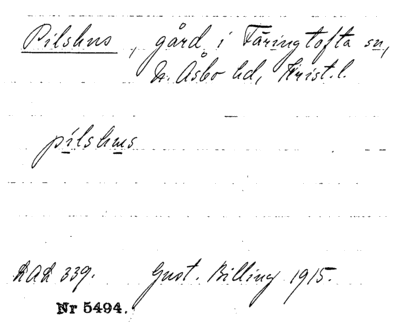 Pilshus, gård i Färingtofta sn,
N. Åsbo hd, Krist. l.
pilshus
LAL 339. Gust. Billing 1915.
Nr 5494.